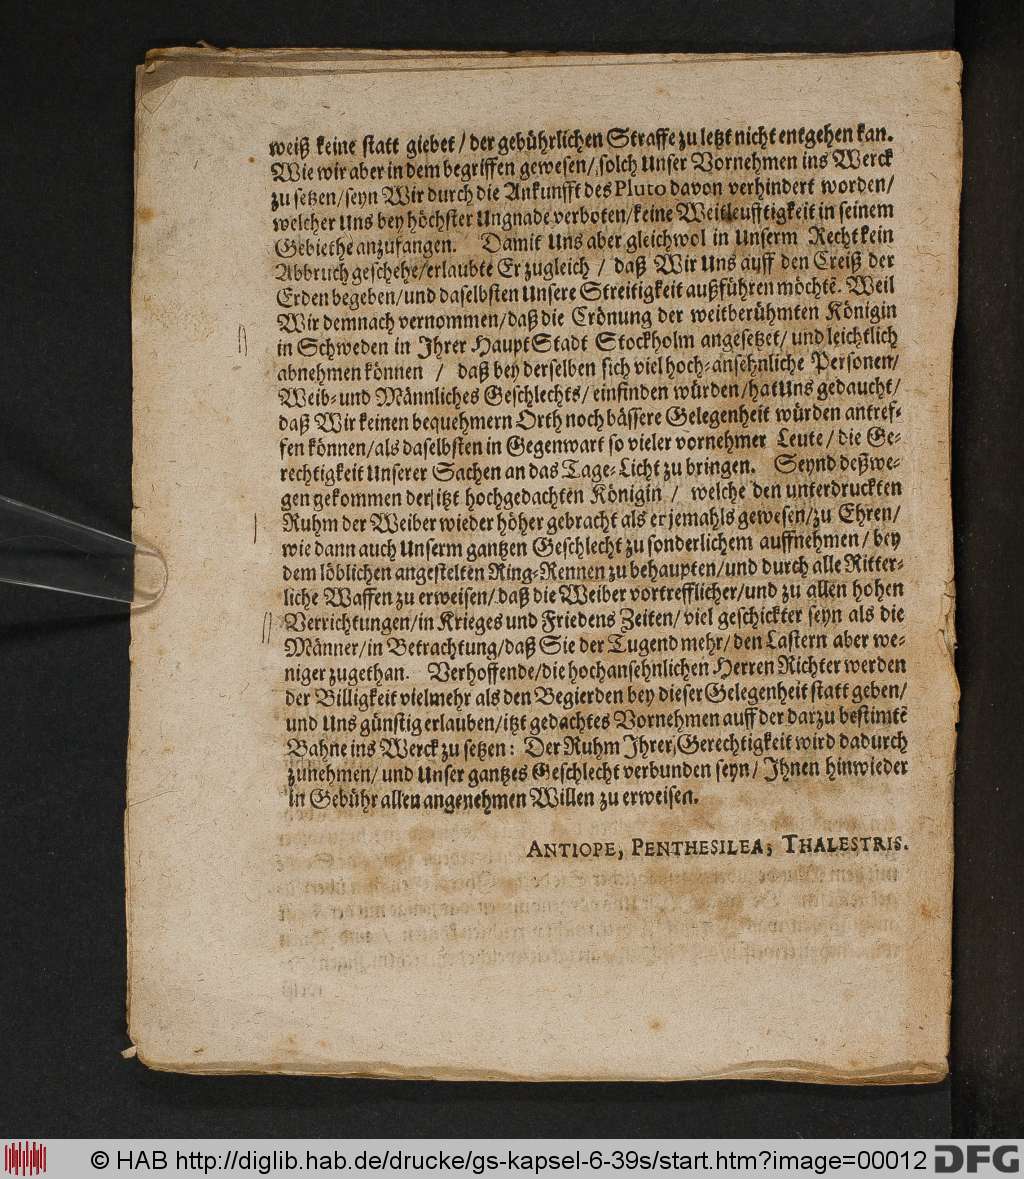 weiß keine statt giebet / der gebührlichen Straffe zu letzt nicht entgehen kan.
Wie wir aber in dem begriffen gewesen / solch Unser Vornehmen ins Werck
zu setzen / seyn Wir durch die Ankunfft des Pluto davon verhindert worden /
welcher Uns bey höchster Ungnade verboten / keine Weitleufftigkeit in seinem
Gebiethe anzufangen. Damit Uns aber gleichwol in Unserm Recht kein
Abbruch geschehe / erlaubte Er zugleich / daß Wir Uns auff den Creiß der
Erden begeben / und daselbsten Unsere Streitigkeit außführen möchtē. Weil
Wir demnach vernommen / daß die Crönung der weitberühmten Königin
in Schweden in Ihrer Haupt Stadt Stockholm angesetzet / und leichtlich
abnehmen können / daß bey derselben sich viel hoch-ansehnliche Personen /
Weib- und Männliches Geschlechts / einfinden würden / hat Uns gedaucht /
daß Wir keinen bequehmern Orth noch bässere Gelegenheit würden antref-
fen können / als daselbsten in Gegenwart so vieler vornehmer Leute / die Ge-
rechtigkeit Unserer Sachen an das Tage-Licht zu bringen. Seynd deßwe-
gen gekommen der itzt hochgedachten Königin / welche den unterdruckten
Ruhm der Weiber wieder höher gebracht als er jemahls gewesen / zu Ehren /
wie dann auch Unserm gantzen Geschlecht zu sonderlichem auffnehmen / bey
dem löblichen angestelten Ring-Rennen zu behaupten / und durch alle Ritter-
liche Waffen zu erweisen / daß die Weiber vortrefflicher / und zu allen hohen
Verrichtungen / in Krieges und Friedens Zeiten / viel geschickter seyn als die
Männer / in Betrachtung / daß Sie der Tugend mehr / den Lastern aber we-
niger zugethan. Verhoffende / die hochansehnlichen Herren Richter werden
der Billigkeit vielmehr als den Begierden bey dieser Gelegenheit statt geben /
und Uns günstig erlauben / itzt gedachtes Vornehmen auff der darzu bestimtē
Bahne ins Werck zu setzen: Der Ruhm Ihrer Gerechtigkeit wird dadurch
zunehmen / und Unser gantzes Geschlecht verbunden seyn / Ihnen hinwieder
in Gebühr allen angenehmen Willen zu erweisen.
ANTIOPE, PENTHESILEA, THALESTRIS.
© HAB http://diglib.hab.de/drucke/gs-kapsel-6-39s/start.htm?image=00012
DFG